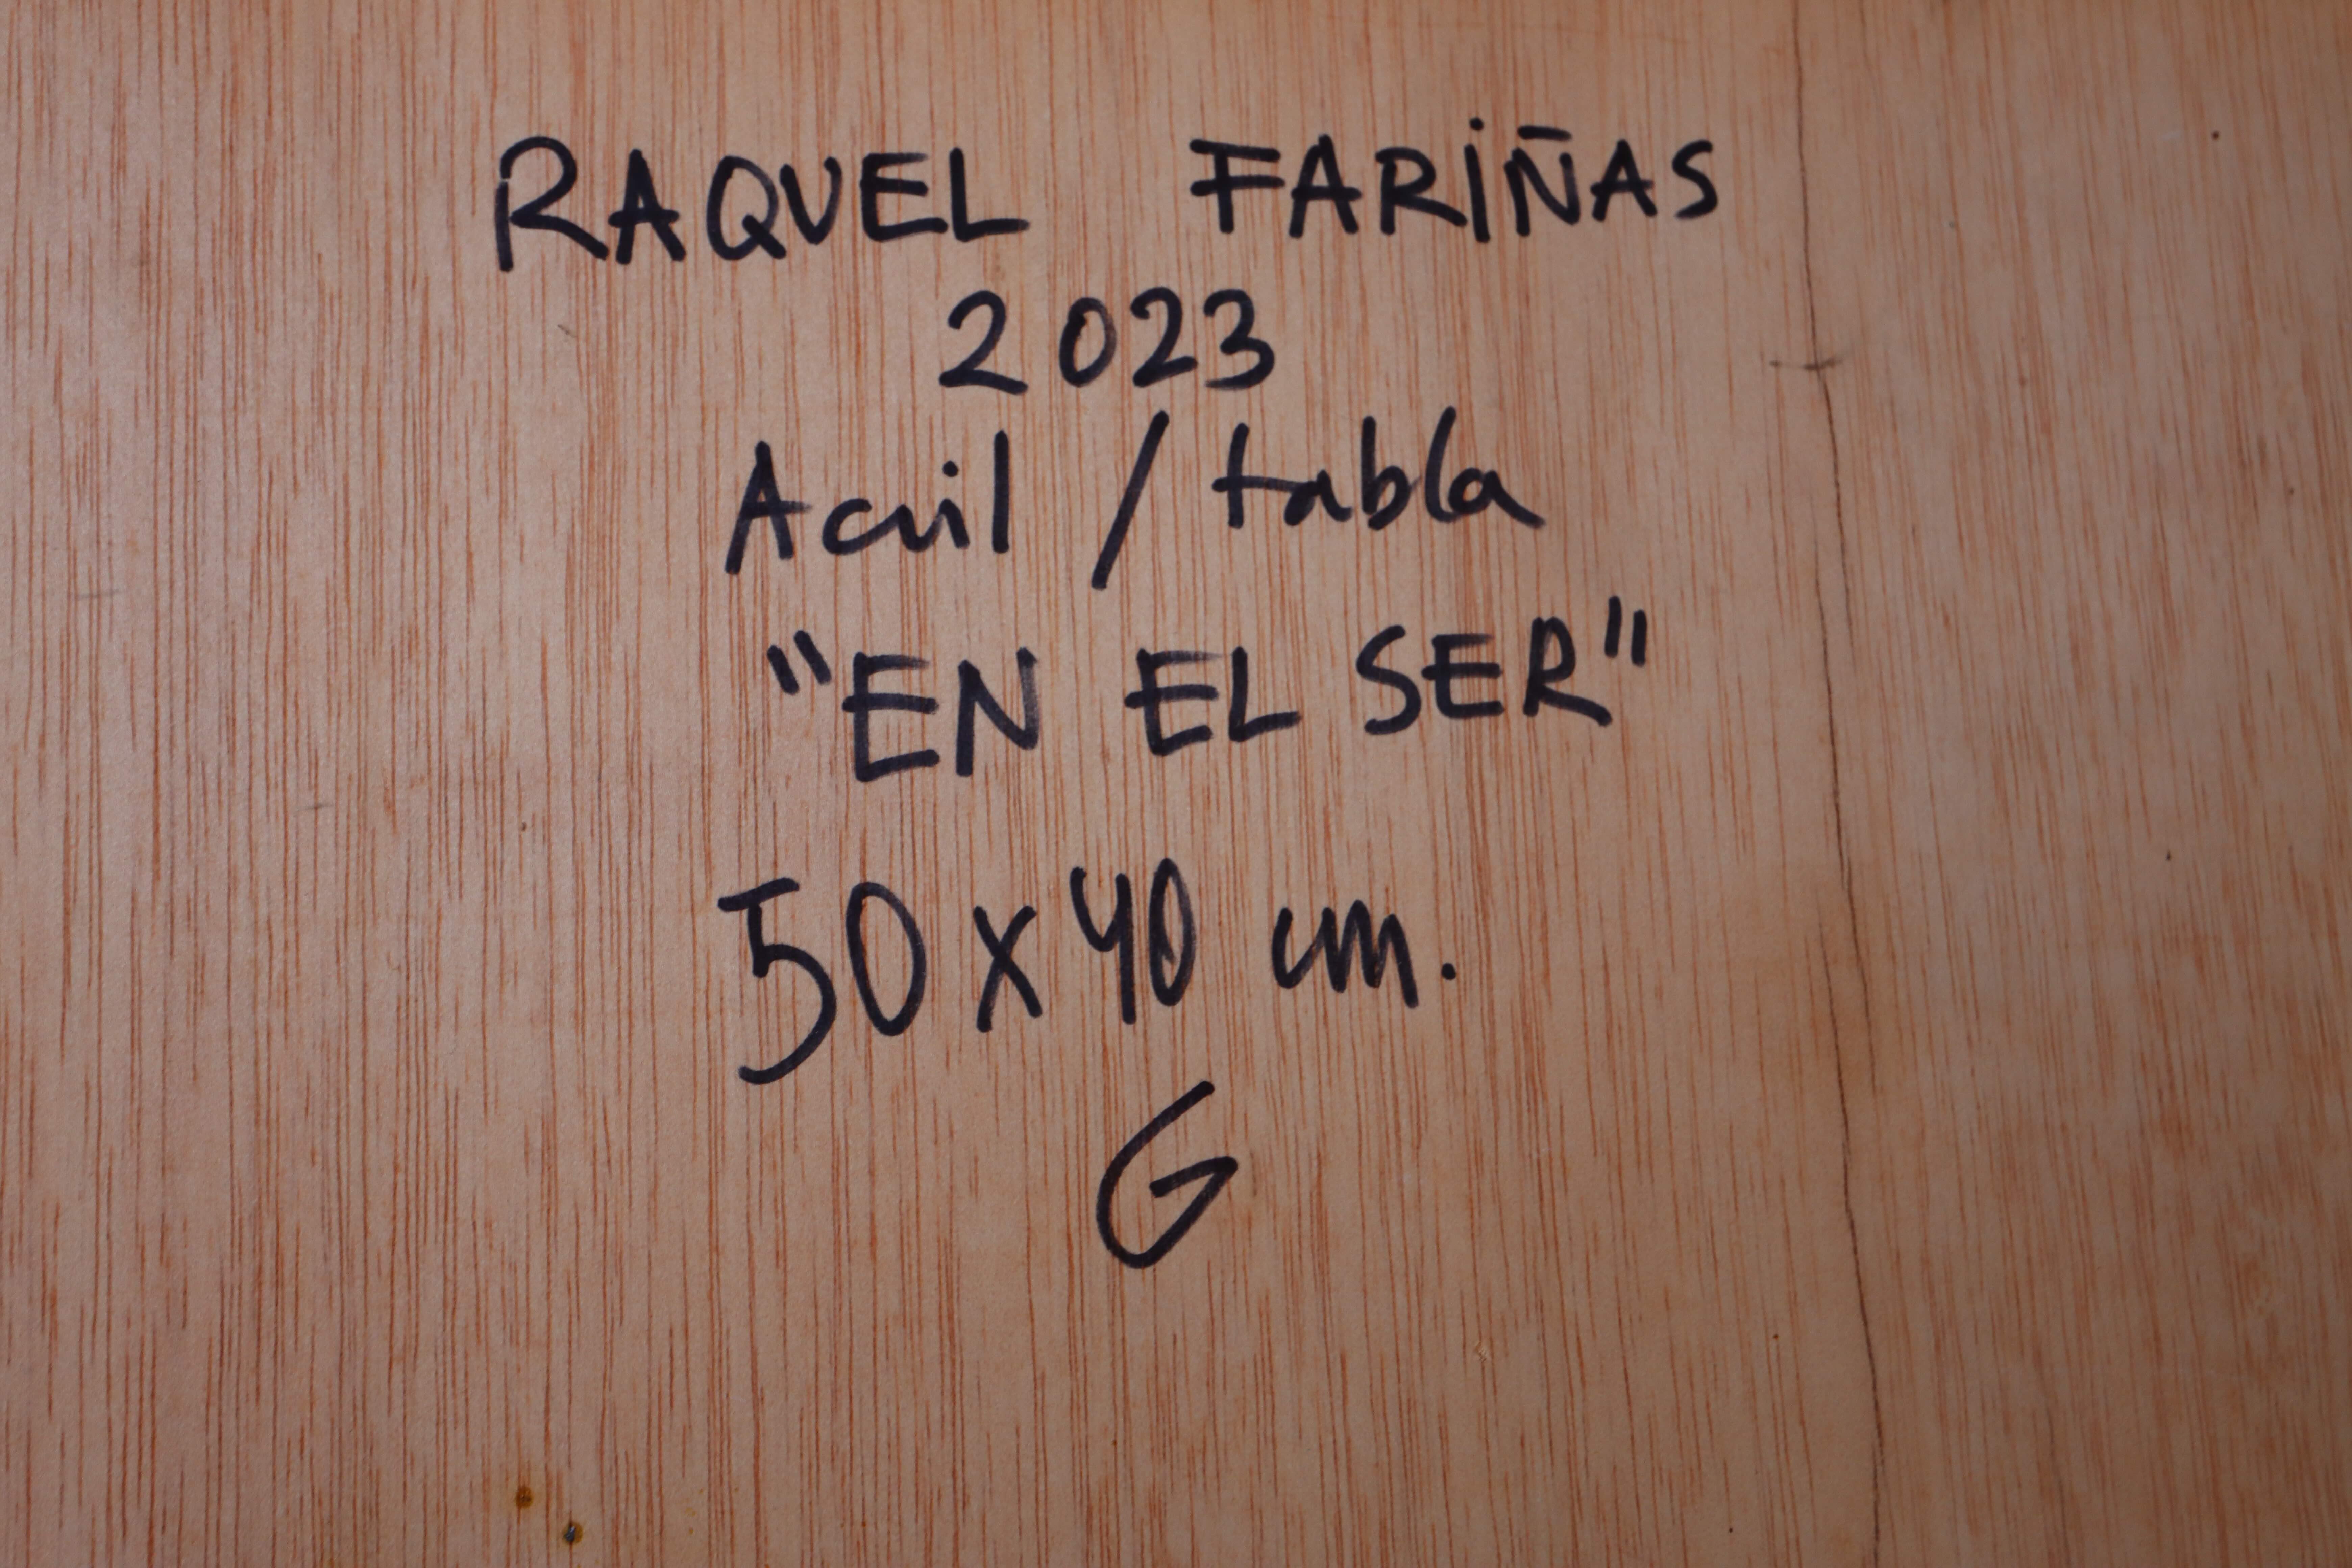 RAQUEL FARIÑAS
2023
Acril / tabla
"EN EL SER"
50 x 40 cm.
G